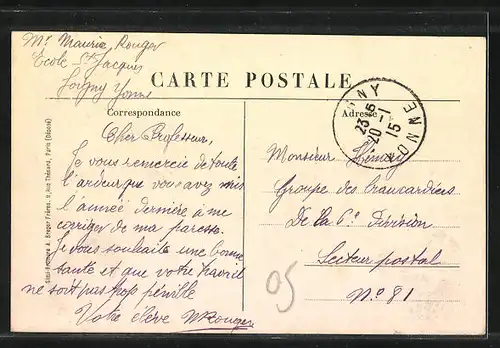 Mr Maurice Rouger
Ecole St Jacques
Joigny Yonne
CARTE POSTALE
Correspondance
Adresse
Cher Professeur,
Je vous remercie de toute
l'ardeur que vous avez mis
l'année dernière à me
corriger de ma paresse.
Je vous souhaite une bonne
santé et que votre travail
ne soit pas trop pénible
Votre élève MRouger
Monsieur
Groupe des brancardiers
De la 6e Division
Secteur postal
No 81
05
NY
23 5
20 -1
15
YONNE
A. Breger Frères, 9, Rue Thénard, Paris